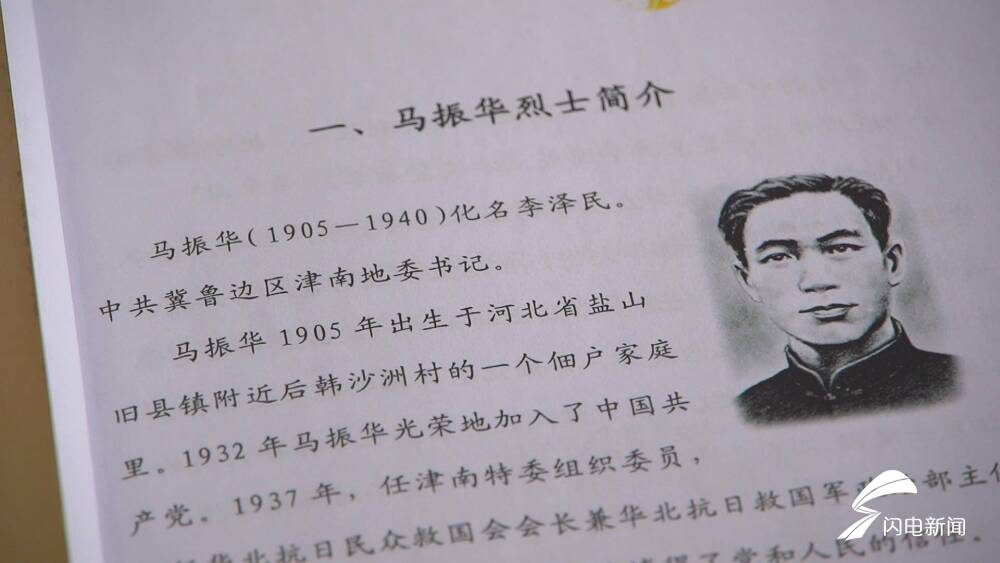 一、马振华烈士简介
马振华(1905—1940)化名李泽民。
中共冀鲁边区津南地委书记。
马振华 1905 年出生于河北省盐山
旧县镇附近后韩沙洲村的一个佃户家庭
里。1932 年马振华光荣地加入了中国共
产党。1937 年，任津南特委组织委员，
华北抗日民众救国会会长兼华北抗日救国军政 部主任
得了党和人民的信任。
闪电新闻